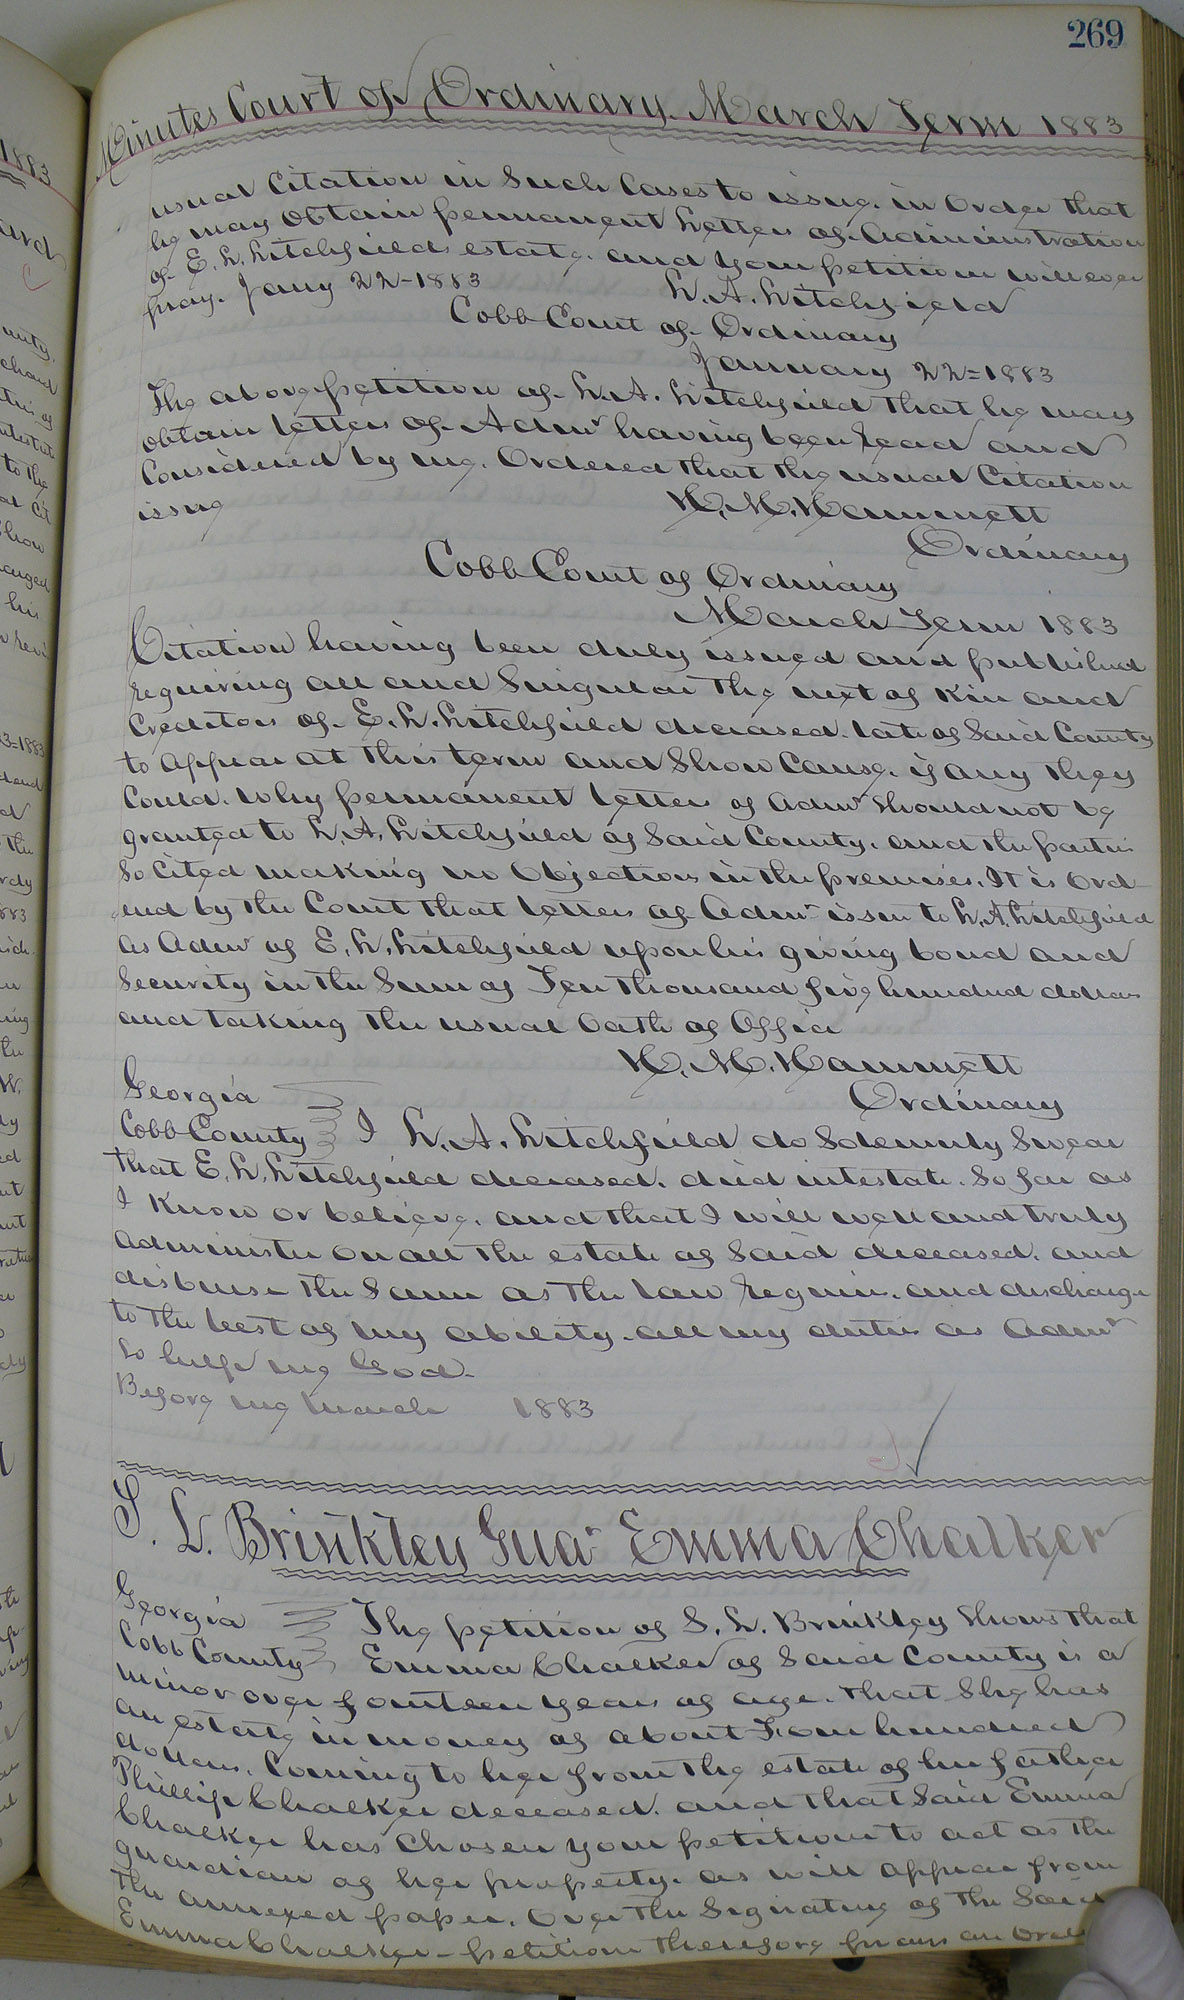 269
Minutes Court of Ordinary. March Term 1883
usual Citation in Such Cases to issue. in Order that
he may Obtain permanent Letters of Administration
of E. L. Litchfields estate. and your petitioner will ever
pray. Jany 22-1883 L. A. Litchfield
Cobb Court of Ordinary
January 22=1883
The above petition of L. A. Litchfield that he may
obtain letters of Admr having been read and
Considered by me. Ordered that the usual Citation
issue H. M. Hammett
Ordinary
Cobb Court of Ordinary
March Term 1883
Citation having been duly issued and published
requiring all and Singular the next of Kin and
Creditors of E. L. Litchfield deceased. late of Said County
to appear at this term and Show Cause. if any they
Could. Why permanent letters of admr Should not be
granted to L. A. Litchfield of Said County. and the parties
So Cited making no Objections in the premises. It is Ord-
ered by the Court that letters of Admr issue to L. A. Litchfield
as Admr of E. L. Litchfield upon his giving bond and
Security in the Sum of Ten thousand five hundred dollars
and taking the usual Oath of Office
H. M. Hammett
Ordinary
Georgia
Cobb County I L. A. Litchfield do Solemnly Swear
that E. L. Litchfield deceased. died intestate. So far as
I Know or believe. and that I will well and truly
administer on all the estate of Said deceased. and
disburse the Same as the law require. and discharge
to the best of my ability. all my duties as Admr
So help me God.
Before me March 1883
S. L. Brinkley Guar Emma Chalker
Georgia The petition of S. L. Brinkley Shows that
Cobb County Emma Chalker of Said County is a
minor over fourteen years of age. that She has
an estate in money of about Four hundred
dollars. Coming to her from the estate of her father
Phillip Chalker deceased. and that Said Emma
Chalker has Chosen your petitioner to act as the
guardian of her property. as will appear from
the annexed paper. Over the Signature of the Said
Emma Chalker - petitioner therefore prays an Order